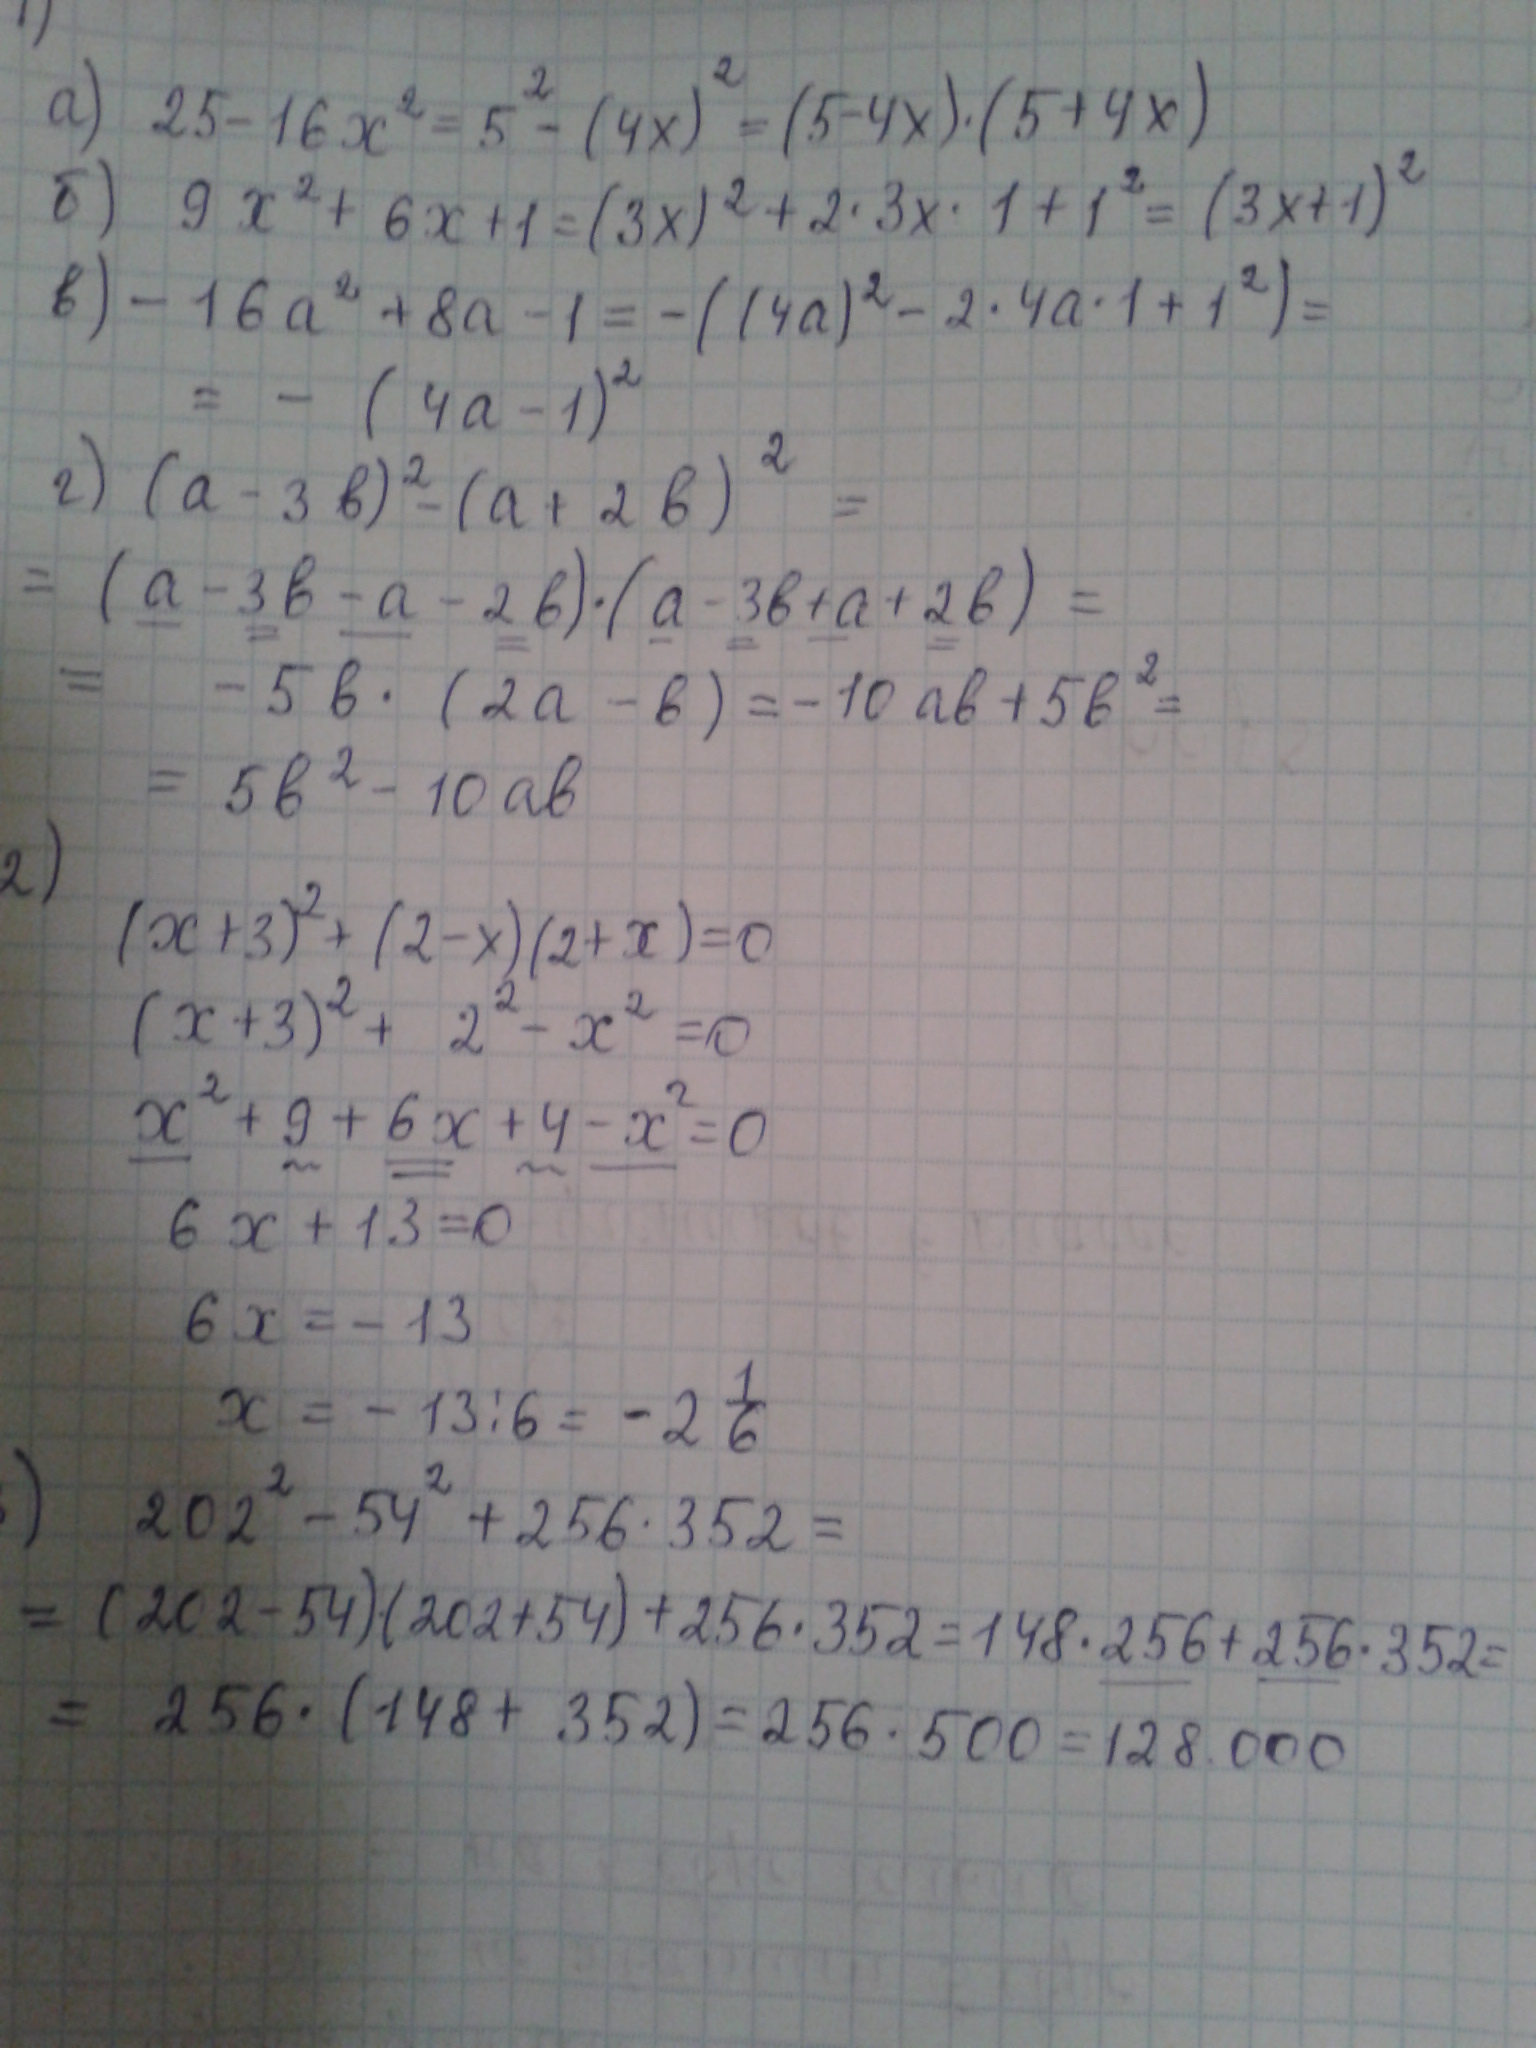 1)
а) 25-16x²=5²-(4x)²=(5-4x)·(5+4x)
б) 9x²+6x+1=(3x)²+2·3x·1+1²=(3x+1)²
в) -16a²+8a-1=-((4a)²-2·4a·1+1²)=
= -(4a-1)²
г) (a-3в)²-(a+2в)² =
= (a-3в-a-2в)·(a-3в+a+2в) =
= -5в·(2a-в)=-10aв+5в²=
= 5в²-10aв
2)
(x+3)²+(2-x)(2+x)=0
(x+3)²+2²-x²=0
x²+9+6x+4-x²=0
6x+13=0
6x=-13
x=-13:6=-2 1/6
) 202²-54²+256·352=
=(202-54)·(202+54)+256·352=148·256+256·352=
= 256·(148+352)=256·500=128.000